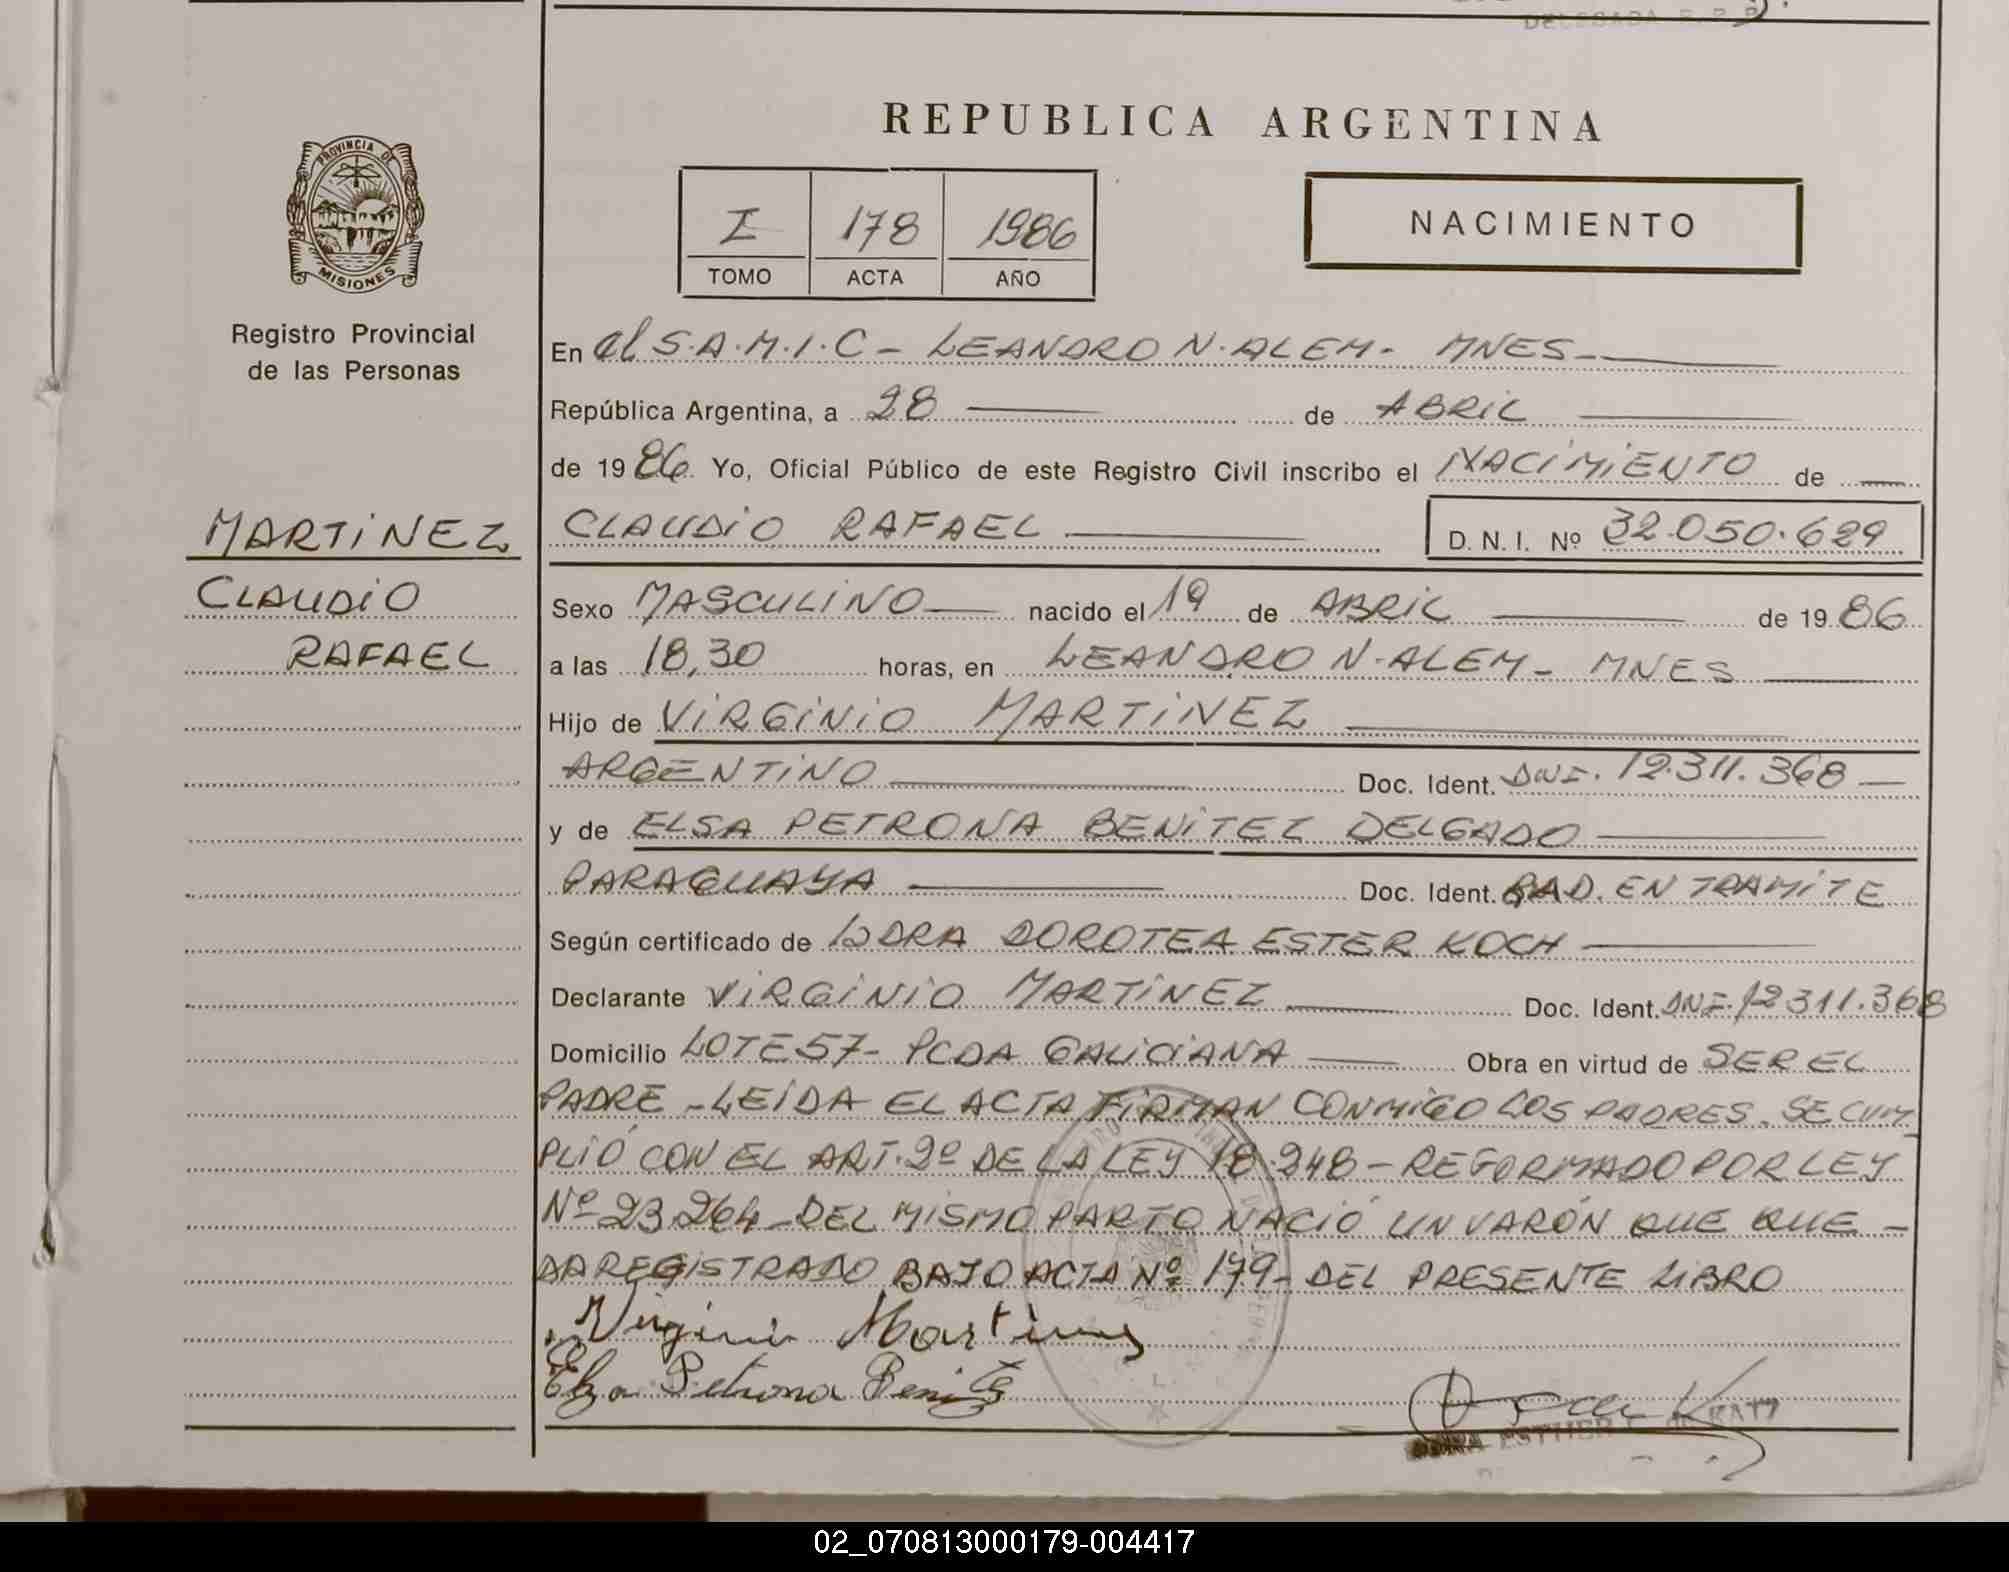 DELEGADA
REPUBLICA ARGENTINA
PROVINCIA DE
MISIONES
Registro Provincial
de las Personas
I 178 1986
TOMO ACTA AÑO
NACIMIENTO
En el S.A.M.I.C - LEANDRO N. ALEM - MNES -
República Argentina, a 28 de ABRIL
de 1986 Yo, Oficial Público de este Registro Civil inscribo el NACIMIENTO de
MARTINEZ
CLAUDIO
RAFAEL
CLAUDIO RAFAEL D. N. I. Nº 32.050.629
Sexo MASCULINO nacido el 19 de ABRIL de 1986
a las 18,30 horas, en LEANDRO N. ALEM - MNES
Hijo de VIRGINIO MARTINEZ
ARGENTINO Doc. Ident. DNI. 12.311.368 -
y de ELSA PETRONA BENITEZ DELGADO
PARAGUAYA Doc. Ident. RAD. EN TRAMITE
Según certificado de LA DRA DOROTEA ESTER KOCH
Declarante VIRGINIO MARTINEZ Doc. Ident. DNI. 12311.368
Domicilio LOTE 57 - PCDA GALICIANA Obra en virtud de SER EL
PADRE - LEIDA EL ACTA FIRMAN CONMIGO LOS PADRES. SE CUM
PLIÓ CON EL ART. 2º DE LA LEY 18.248 - REFORMADO POR LEY
Nº 23.264 - DEL MISMO PARTO NACIÓ UN VARÓN QUE QUE -
DA REGISTRADO BAJO ACTA Nº 179 - DEL PRESENTE LIBRO
Virginio Martinez
Elza Petrona Benitez
ESTHER KATZ
02_070813000179-004417